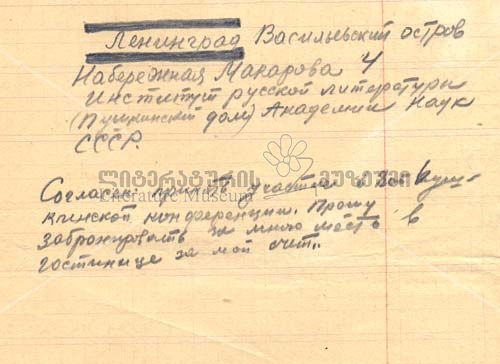 Ленинград Васильевский остров
Набережная Макарова 4
Институт русской литературы
(Пушкинский дом) Академии Наук
СССР.
ლიტერატურის მუზეუმი
Literature Museum
Согласен принять участие в Пуш-
кинской конференции. Прошу
забронировать за мною место в
гостинице за мой счет.